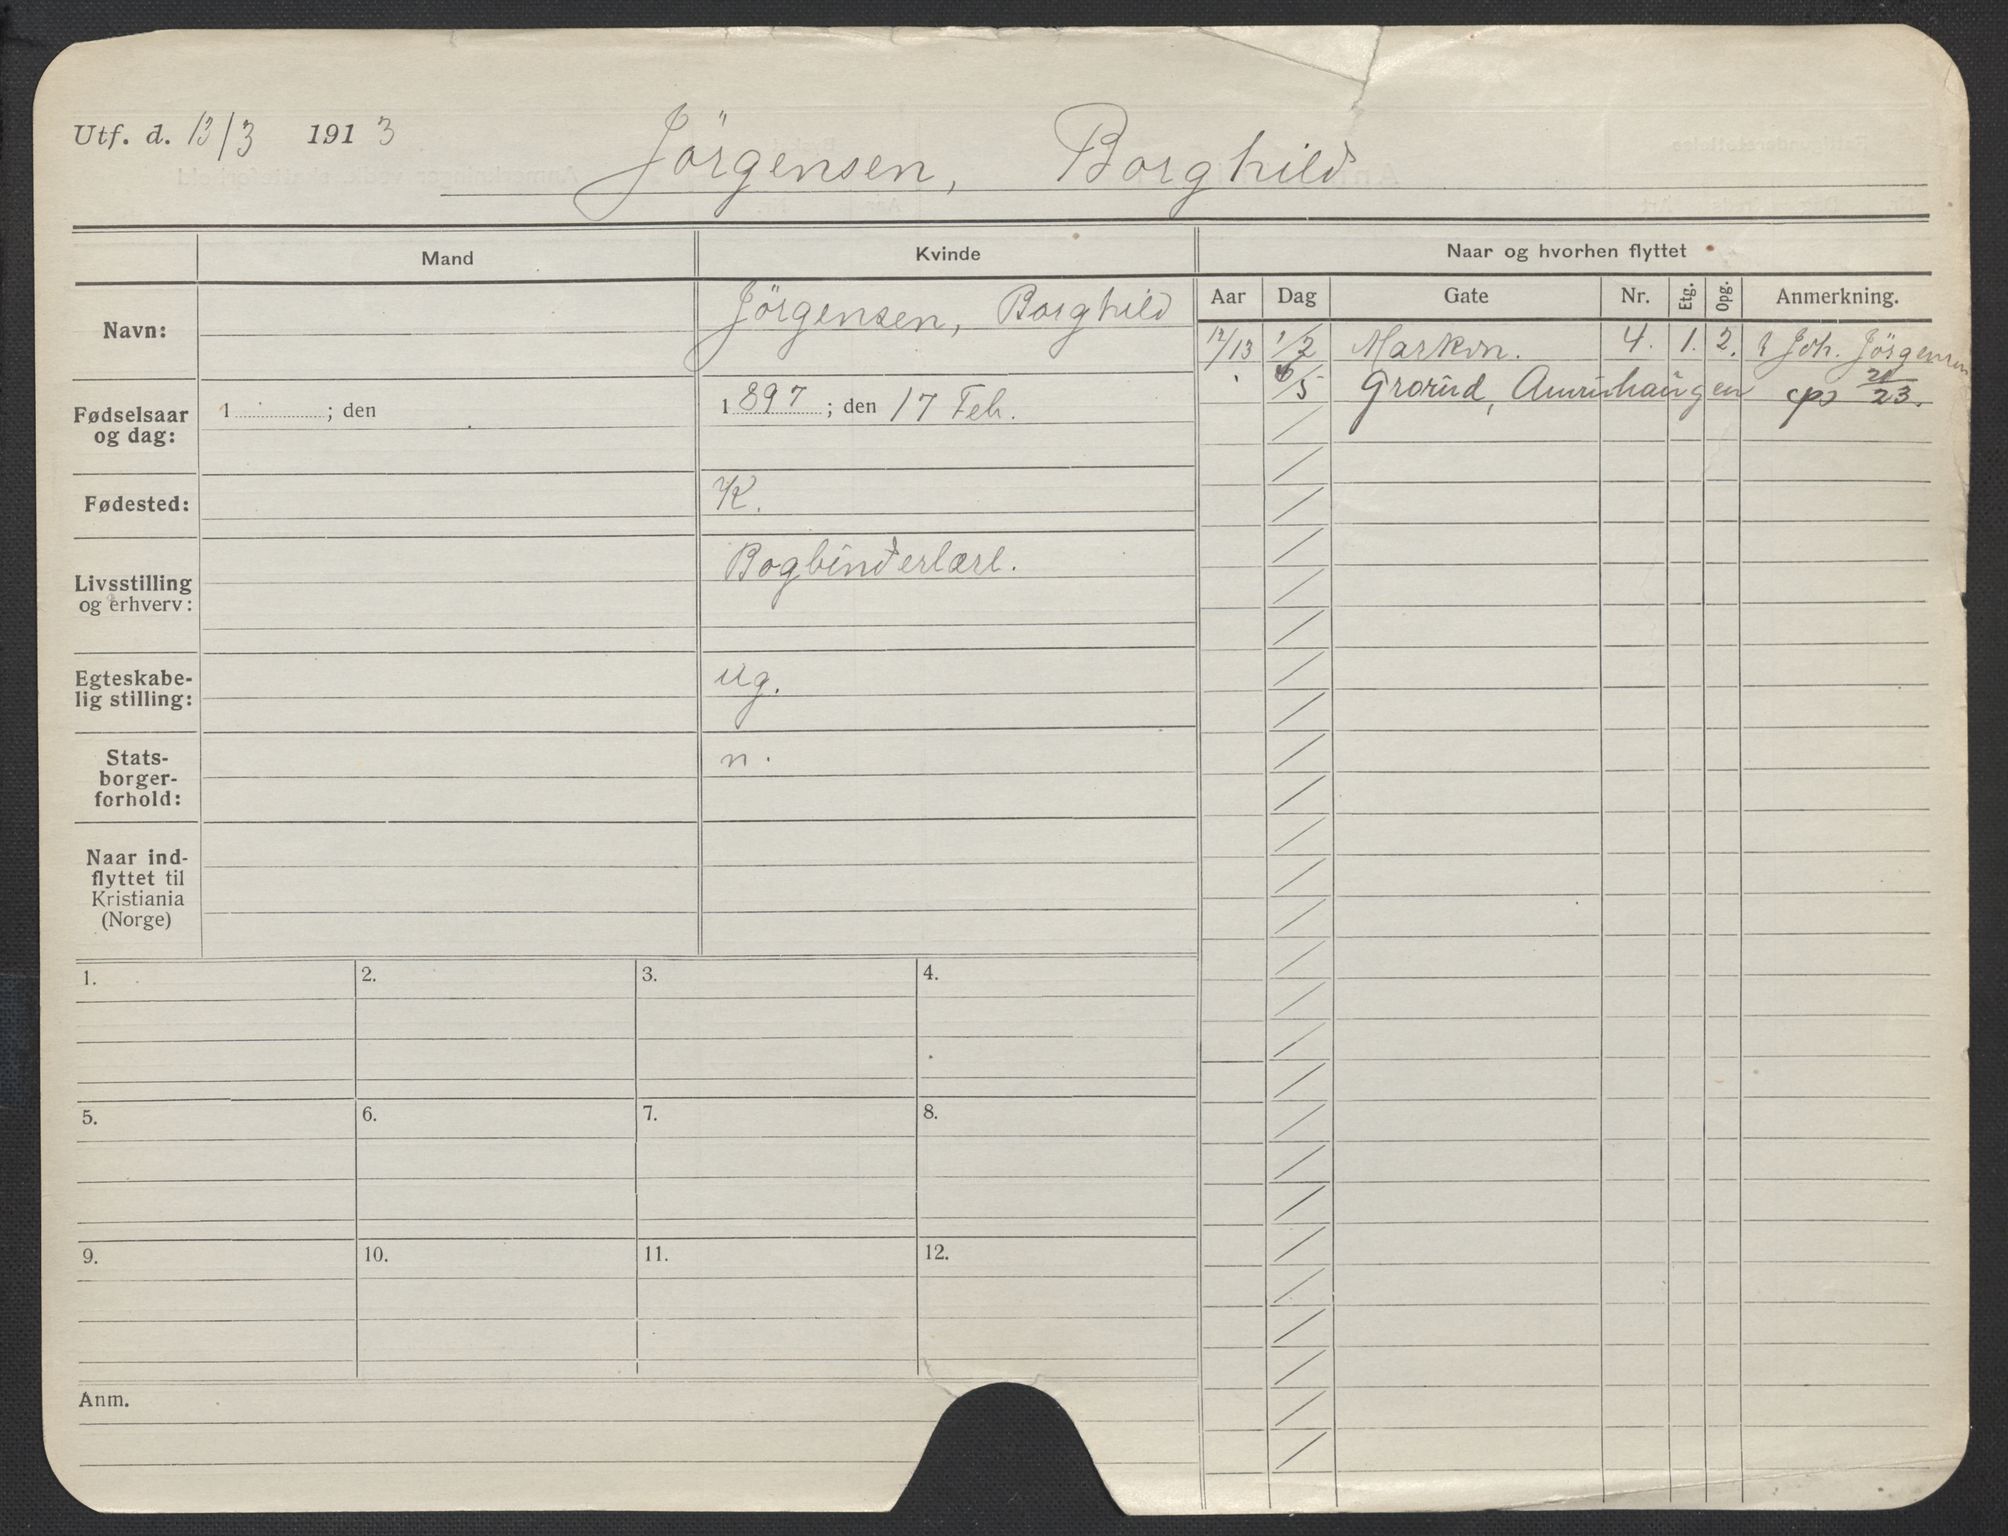 Utf. d. 13/3 1913
Jörgensen, Borghild
Mand
Kvinde
Naar og hvorhen flyttet
Aar Dag Gate Nr. Etg. Opg. Anmerkning.
Navn:
Jörgensen, Borghild
12/13 1/2 Markvn. 4. 1. 2. Joh. Jörgensen
6/5 Grorud, cps 21/23.
Fødselsaar
og dag:
1 ; den
1897 ; den 17 Feb.
Fødested:
K.
Livsstilling
og erhverv:
Bogbinderlærl.
Egteskabe-
lig stilling:
ug.
Stats-
borger-
forhold:
n.
Naar ind-
flyttet til
Kristiania
(Norge)
1. 2. 3. 4.
5. 6. 7. 8.
9. 10. 11. 12.
Anm.